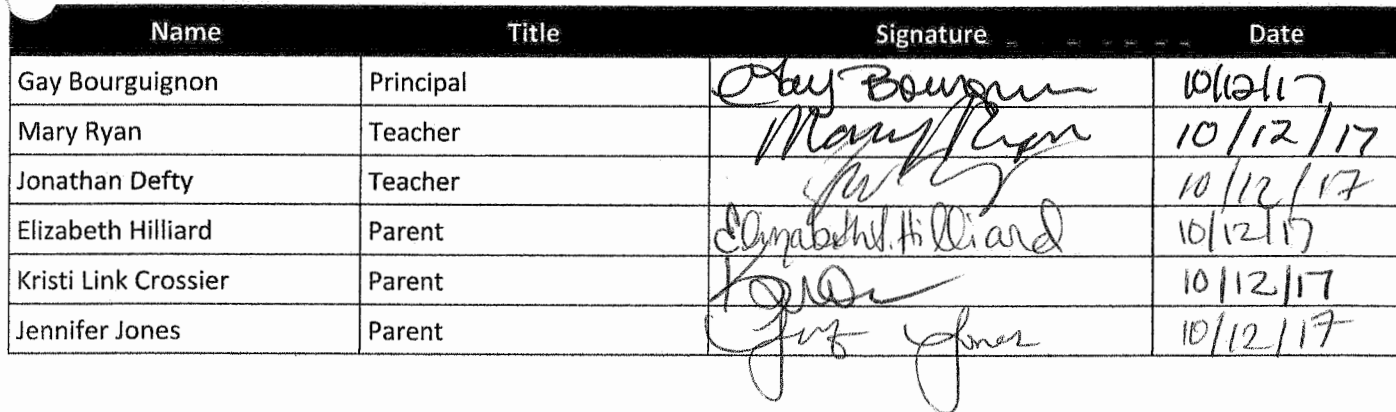 Name Title Signature Date
Gay Bourguignon Principal Gay 10/12/17
Mary Ryan Teacher Mary Ryan 10/12/17
Jonathan Defty Teacher 10/12/17
Elizabeth Hilliard Parent Elizabeth Hilliard 10/12/17
Kristi Link Crossier Parent 10/12/17
Jennifer Jones Parent Jones 10/12/17